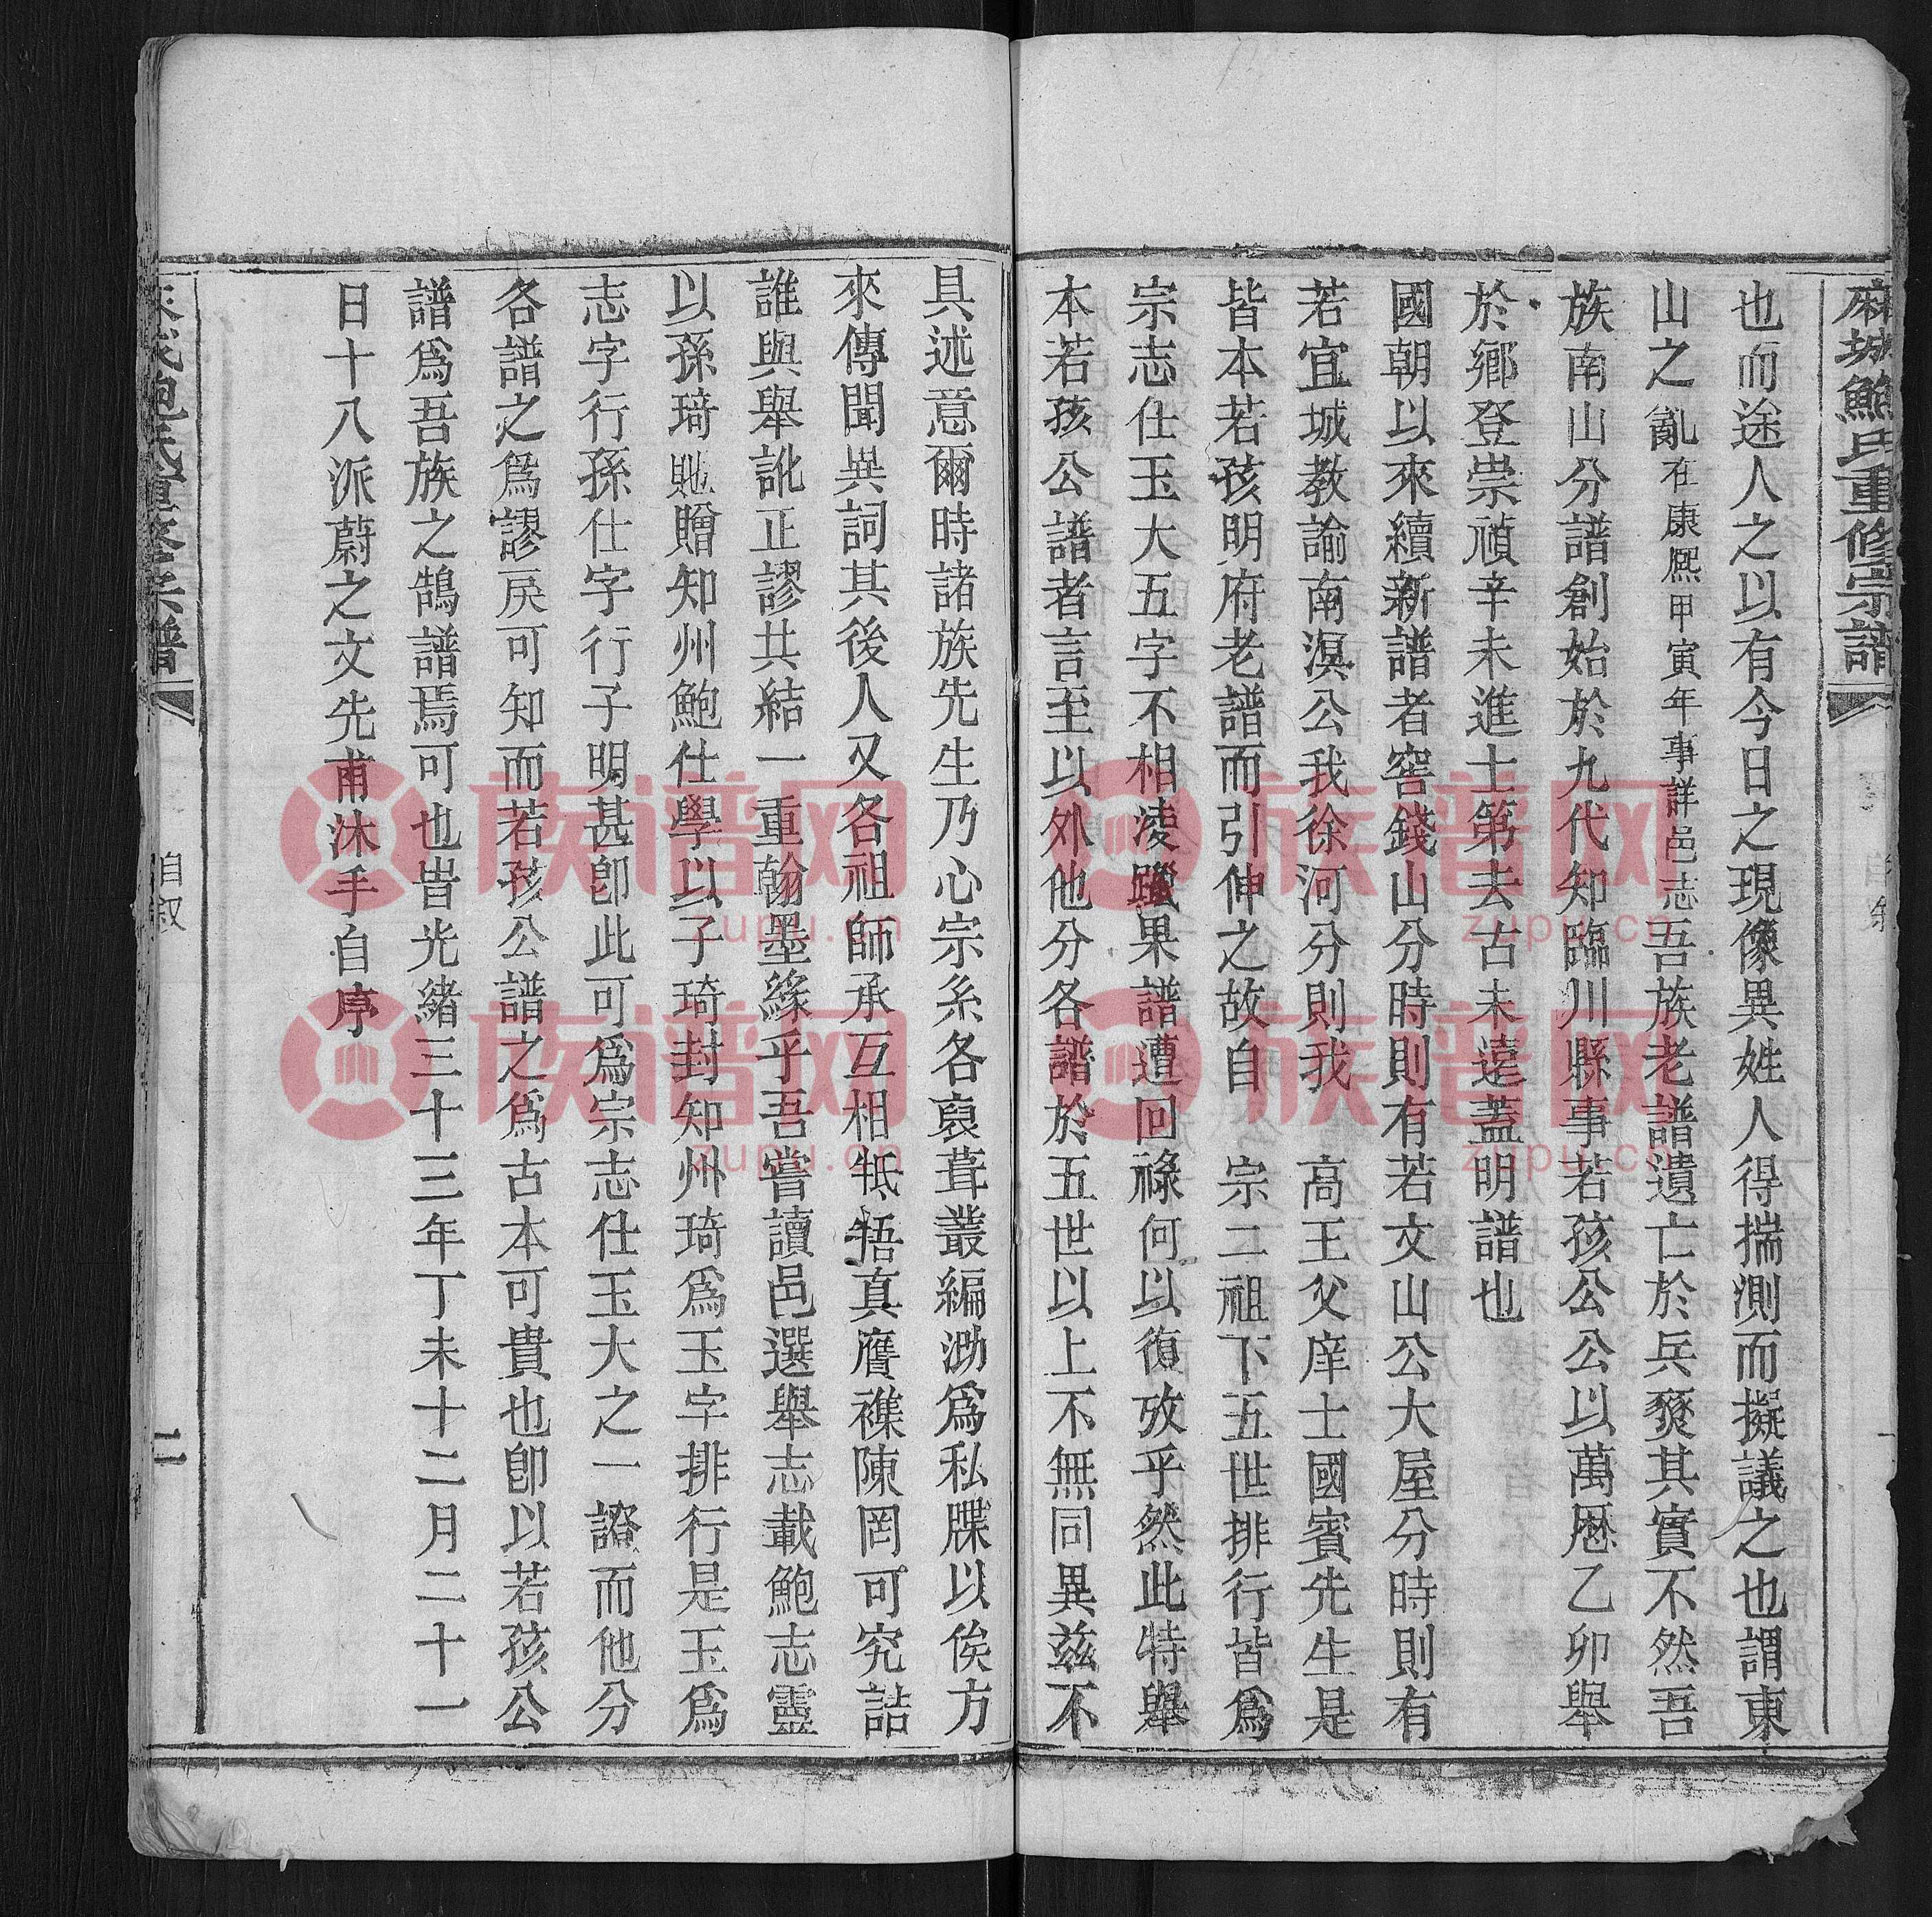 麻城鮑氏重修宗譜
也而途人之以有今日之現像異姓人得揣測而擬議之也謂東
山之亂在康熙甲寅年事詳邑志吾族老譜遺亡於兵燹其實不然吾
族南山分譜創始於九代知臨川縣事若孩公公以萬厯乙卯舉
於鄉登崇禎辛未進士第去古未遠蓋明譜也
國朝以來續新譜者窖錢山分時則有若文山公大屋分時則有
若宜城教諭南溟公我徐河分則我 高王父庠士國賓先生是
皆本若孩明府老譜而引伸之故自 宗二祖下五世排行皆爲
宗志仕玉大五字不相凌躐果譜遭回祿何以復攷乎然此特舉
本若孩公譜者言至以外他分各譜於五世以上不無同異茲不
具述意爾時諸族先生乃心宗系各裒葺叢編泐爲私牒以俟方
來傳聞異詞其後人又各祖師承互相牴牾真贗襍陳罔可究詰
誰與舉訛正謬共結一重翰墨緣乎吾嘗讀邑選舉志載鮑志靈
以孫琦貤贈知州鮑仕學以子琦封知州琦爲玉字排行是玉爲
志字行孫仕字行子明甚卽此可爲宗志仕玉大之一證而他分
各譜之爲謬戾可知而若孩公譜之爲古本可貴也卽以若孩公
譜爲吾族之鵠譜焉可也旹光緒三十三年丁未十二月二十一
日十八派蔚之文先甫沐手自序
自叙
二
族谱网
zupu.cn
族谱网
zupu.cn
族谱网
zupu.cn
族谱网
zupu.cn